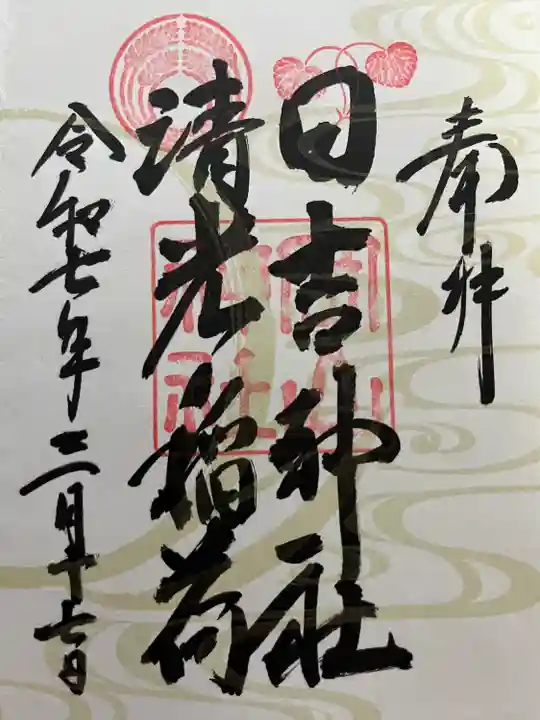 奉拝
日吉神社
清光稲荷
令和七年三月十七日